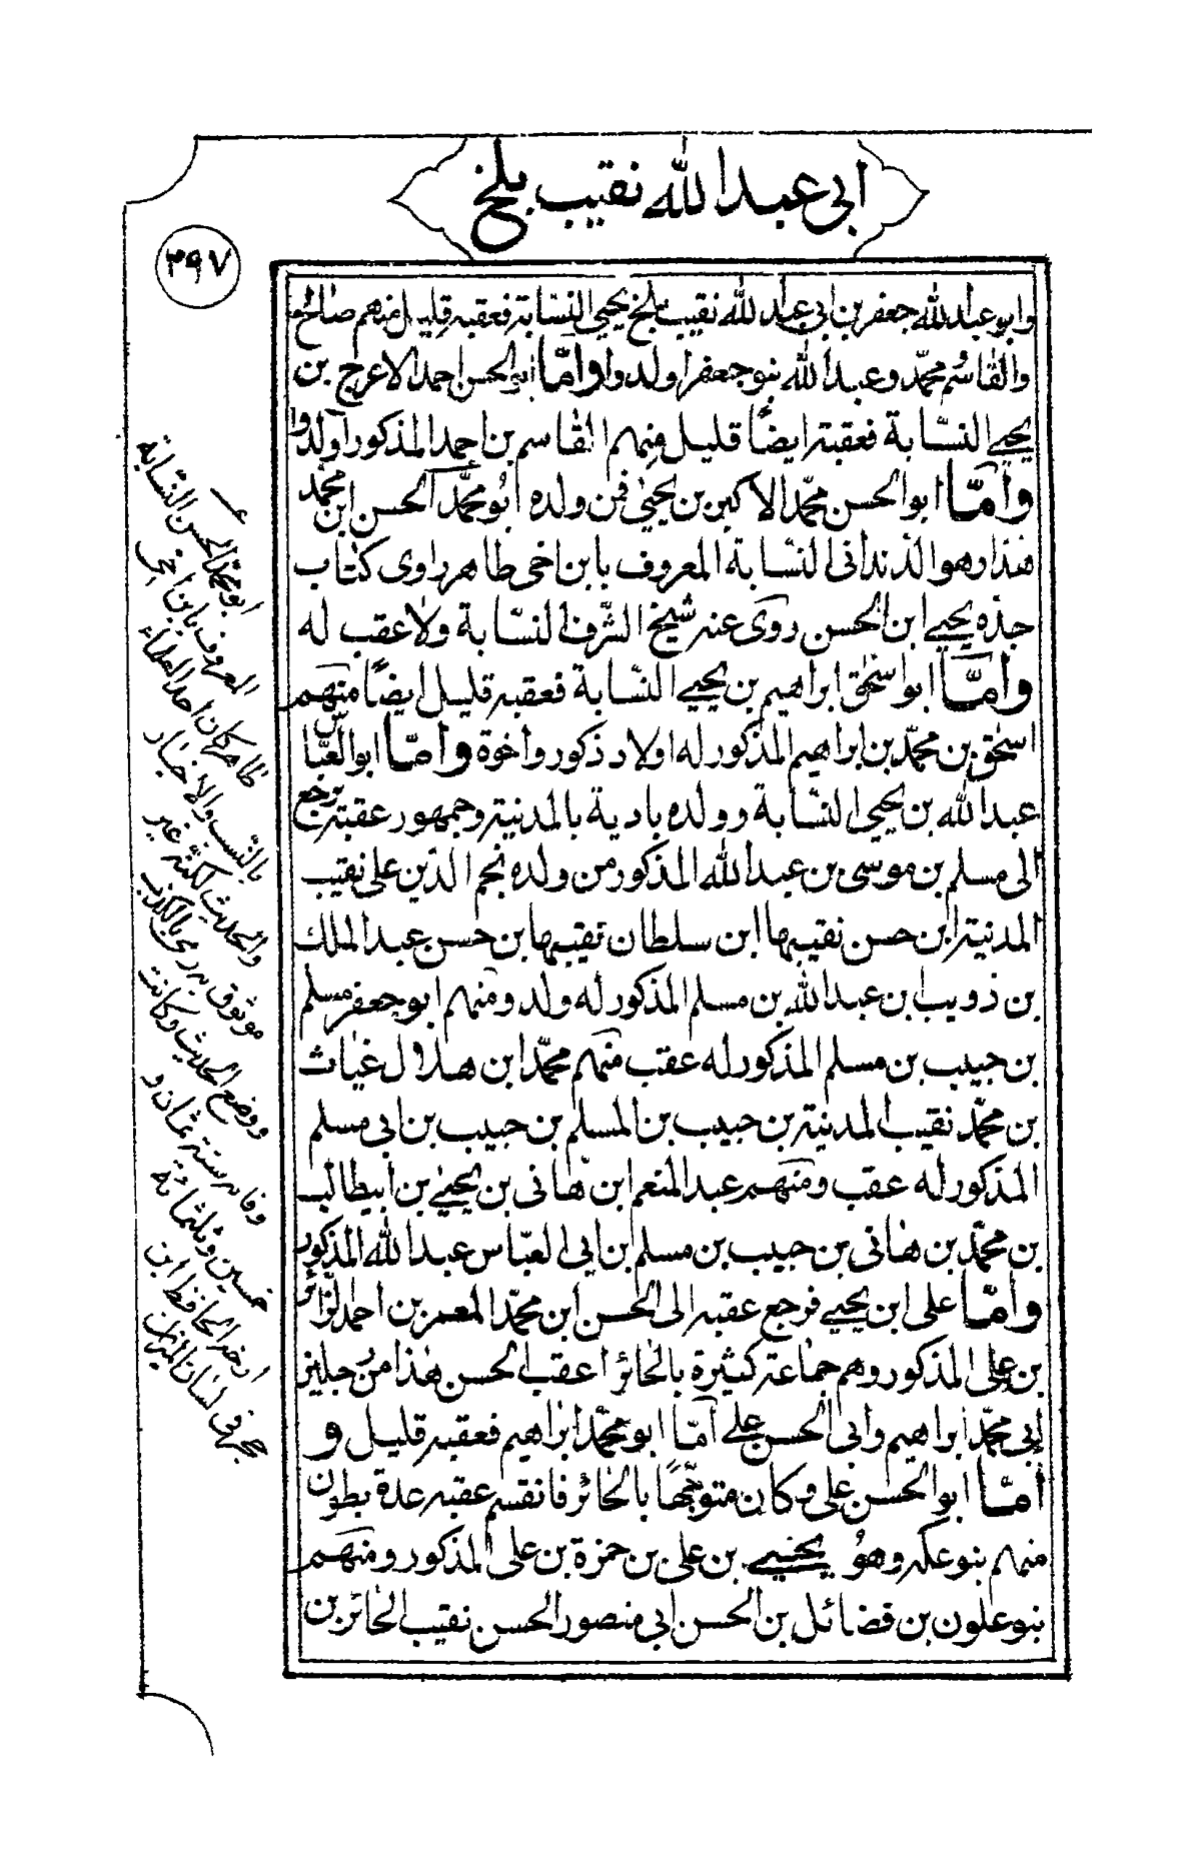 ابی عبدالله نقیب بلخ
٢٩٧
وابو عبدالله جعفر بن ابی عبدالله نقیب بلخ یحیی النسّابة فعقبه قلیل منهم صالح
والقاسم محمّد وعبدالله بنو جعفر اولدوا وامّا ابوالحسن احمد الاعرج بن
یحیی النسّابة فعقبه ایضًا قلیل منهم القاسم بن احمد المذکور اولدوا
وامّا ابوالحسن محمّد الاکبر بن یحیی فمن ولده ابو محمّد الحسن ابن محمّد
هذا وهو الدندانی النسّابة المعروف بابن اخی طاهر راوی کتاب
جدّه یحیی ابن الحسن روی عنه شیخ الشّرف النسّابة ولا عقب له
وامّا ابو اسحٰق ابراهیم بن یحیی النسّابة فعقبه قلیل ایضًا منهم
اسحٰق بن محمّد بن ابراهیم المذکور له اولاد ذکور واخوة وامّا ابوالعبّاس
عبدالله بن یحیی النسّابة وولده بادیة بالمدینة وجمهور عقبه یرجع
الی مسلم بن موسی بن عبدالله المذکور من ولده نجم الدّین علی نقیب
المدینة ابن حسن نقیبها ابن سلطان نقیبها بن حسن عبدالملك
بن ذویب بن عبدالله بن مسلم المذکور له ولد ومنهم ابو جعفر مسلم
بن حبیب بن مسلم المذکور له عقب منهم محمّد ابن هلال غیاث
بن محمّد نقیب المدینة بن حبیب بن المسلم بن حبیب بن ابی مسلم
المذکور له عقب ومنهم عبدالمنعم ابن هانی بن یحیی بن ابیطالب
بن محمّد بن هانی بن حبیب بن مسلم بن ابی العبّاس عبدالله المذکور
وامّا علی ابن یحیی فرجع عقبه الی الحسن ابن محمّد المعمر بن احمد الزائر
بن علی المذکور وهم جماعة کثیرة بالحائر اعقب الحسن هذا من رجلین
ابی محمّد ابراهیم وابی الحسن علی امّا ابو محمّد ابراهیم فعقبه قلیل و
امّا ابوالحسن علی وکان متوجّهًا بالحائر فانقسم عقبه عدة بطون
منهم بنو عکه وهو یحیی بن علی بن حمزة بن علی المذکور ومنهم
بنو علون بن فضائل بن الحسن ابی منصور الحسن نقیب الحائر بن
ابو محمّد الحسن النسّابة
المعروف بابن اخی
طاهر کان احد العلماء
بالنّسب والاخبار
والحدیث لکنّه غیر
موثوق به رمی بالکذب
ووضع الحدیث وکانت
وفاته سنة ثمان و
خمسین وثلثمائة
ارّخه الحافظ ابن
حجر فی لسان المیزان